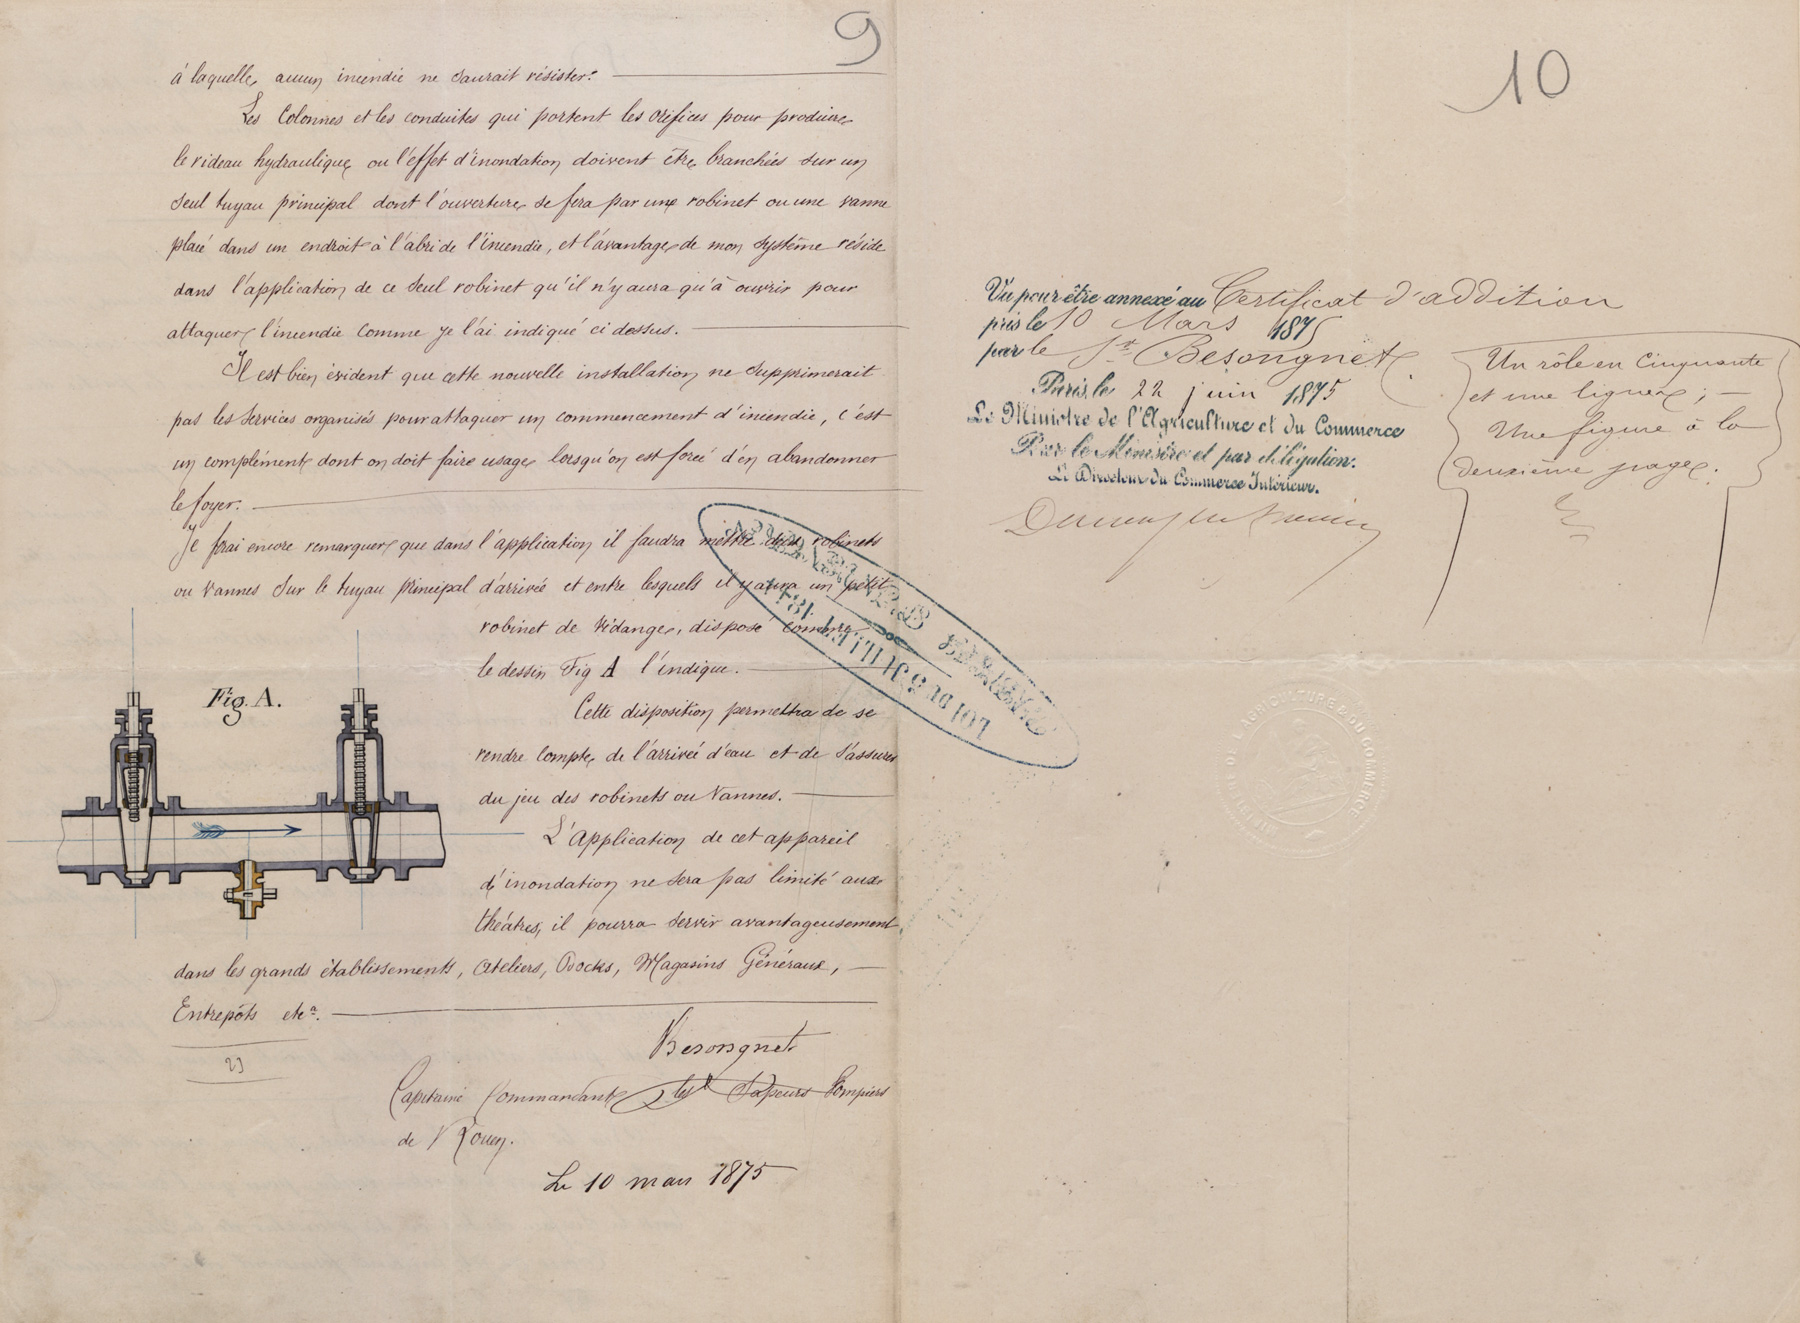 9
à laquelle, aucun incendie ne saurait résister.
Les Colonnes et les conduites qui portent les orifices pour produire
le rideau hydraulique ou l'effet d'inondation doivent être branchées sur un
seul tuyau principal dont l'ouverture se fera par une robinet ou une vanne
placé dans un endroit à l'abri de l'incendie, et l'avantage de mon système réside
dans l'application de ce seul robinet qu'il n'y aura qu'à ouvrir pour
attaquer l'incendie comme je l'ai indiqué ci dessus.
Il est bien évident que cette nouvelle installation ne supprimerait
pas les services organisés pour attaquer un commencement d'incendie, c'est
un complément dont on doit faire usage lorsqu'on est forcé d'en abandonner
le foyer.
Je ferai encore remarquer que dans l'application il faudra mettre deux robinets
ou vannes sur le tuyau principal d'arrivée et entre lesquels il y aura un petit
robinet de vidange, disposé comme
le dessin Fig A l'indique.
Fig. A.
Cette disposition permettra de se
rendre compte de l'arrivée d'eau et de s'assurer
du jeu des robinets ou vannes.
L'Application de cet appareil
d'inondation ne sera pas limité aux
théâtres, il pourra servir avantageusement
dans les grands établissements, Ateliers, Docks, Magasins Généraux,
Entrepôts etca.
23
Besongnet
Capitaine Commandant les Sapeurs Pompiers
de Rouen.
Le 10 mars 1875
LOI DU 5 JUILLET 1844
10
Vu pour être annexé au Certificat d'addition
pris le 10 Mars 1875
par le Sr Besongnet
Paris, le 22 juin 1875
Le Ministre de l'Agriculture et du Commerce
Pour le Ministre et par délégation.
Le Directeur du Commerce Intérieur.
Un rôle en Cinquante
et une lignes ;
Une figure à la
deuxième page.
MINISTERE DE L'AGRICULTURE & DU COMMERCE